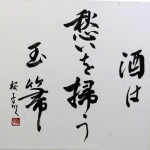 酒は
愁いを掃う
玉箒